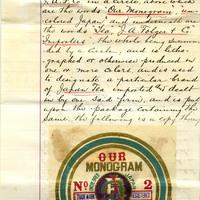 J. A. F. & Co in a Circle, above which
are the words "Our Monogram" un-
colored Japan" and underneath are
the words "Tea, J. A. Folger & Co
Importers", the whole being surroun-
ded by a Circle, and is litho-
graphed or otherwise produced in
one or more colors, and is used
to designate a particular brand
of Japan Tea imported & dealt
in by our said firm, and is put
upon the package containing the
same. the following is a copy thereof
OUR
MONOGRAM
No 1 2
TRADE MARK REGISTERED